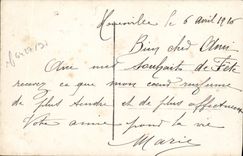 le 6 Avril 1910
Bien cher Ami
Que mes Souhaits de Fête
recevez ce que mon cœur renferme
de plus tendre et de plus affectueux
Votre amie pour la vie
Marie